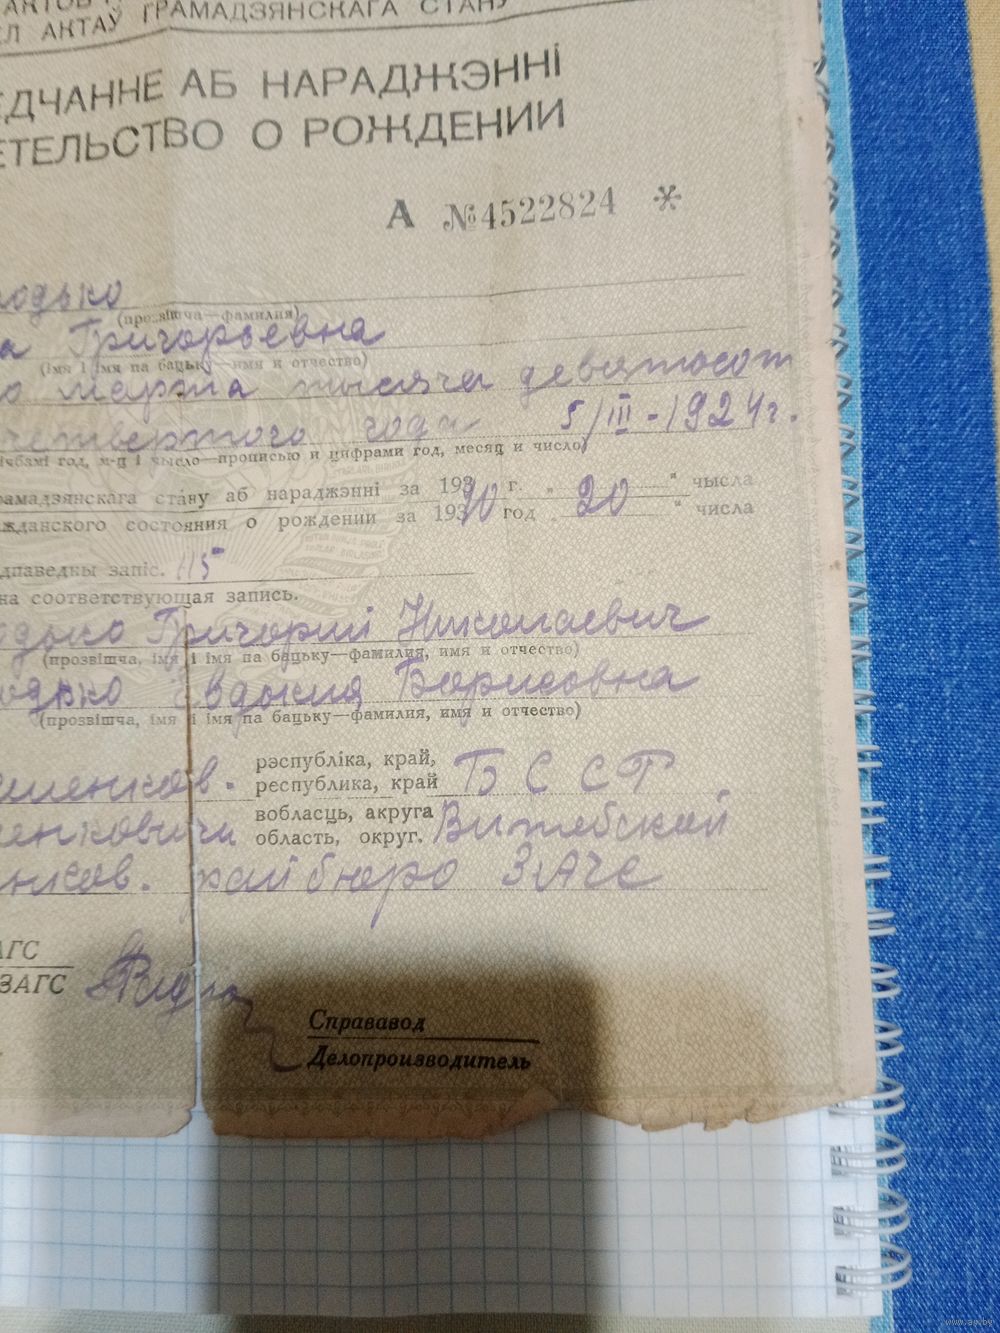 АКТАЎ ГРАМАДЗЯНСКАГА СТАНУ
ЕДЧАННЕ АБ НАРАДЖЭННІ
ЕТЕЛЬСТВО О РОЖДЕНИИ
А №4522824 *
одько
(прозвішча—фамилия)
а Григорьевна
(імя і імя па бацьку—имя и отчество)
го марта тысяча девятьсот
четвертого года 5/III-1924г.
лічбамі год, м-ц і чысло—прописью и цифрами год, месяц и число)
рамадзянскага стану аб нараджэнні за 193 г. „ " чысла
жданского состояния о рождении за 1940 год „ 20 " числа
дпаведкы запіс. 115
на соответствующая запись.
одько Григорий Николаевич
(прозвішча, імя і імя па бацьку—фамилия, имя и отчество)
одько Евдокия Борисовна
(прозвішча, імя і імя па бацьку—фамилия, имя и отчество)
сненков. рэспубліка, край,
республика, край БССР
енковичи вобласць, акруга
область, округ. Витебской
нков. райбюро ЗАГС
АГС
ЗАГС
Справавод
Делопроизводитель
www.ay.by